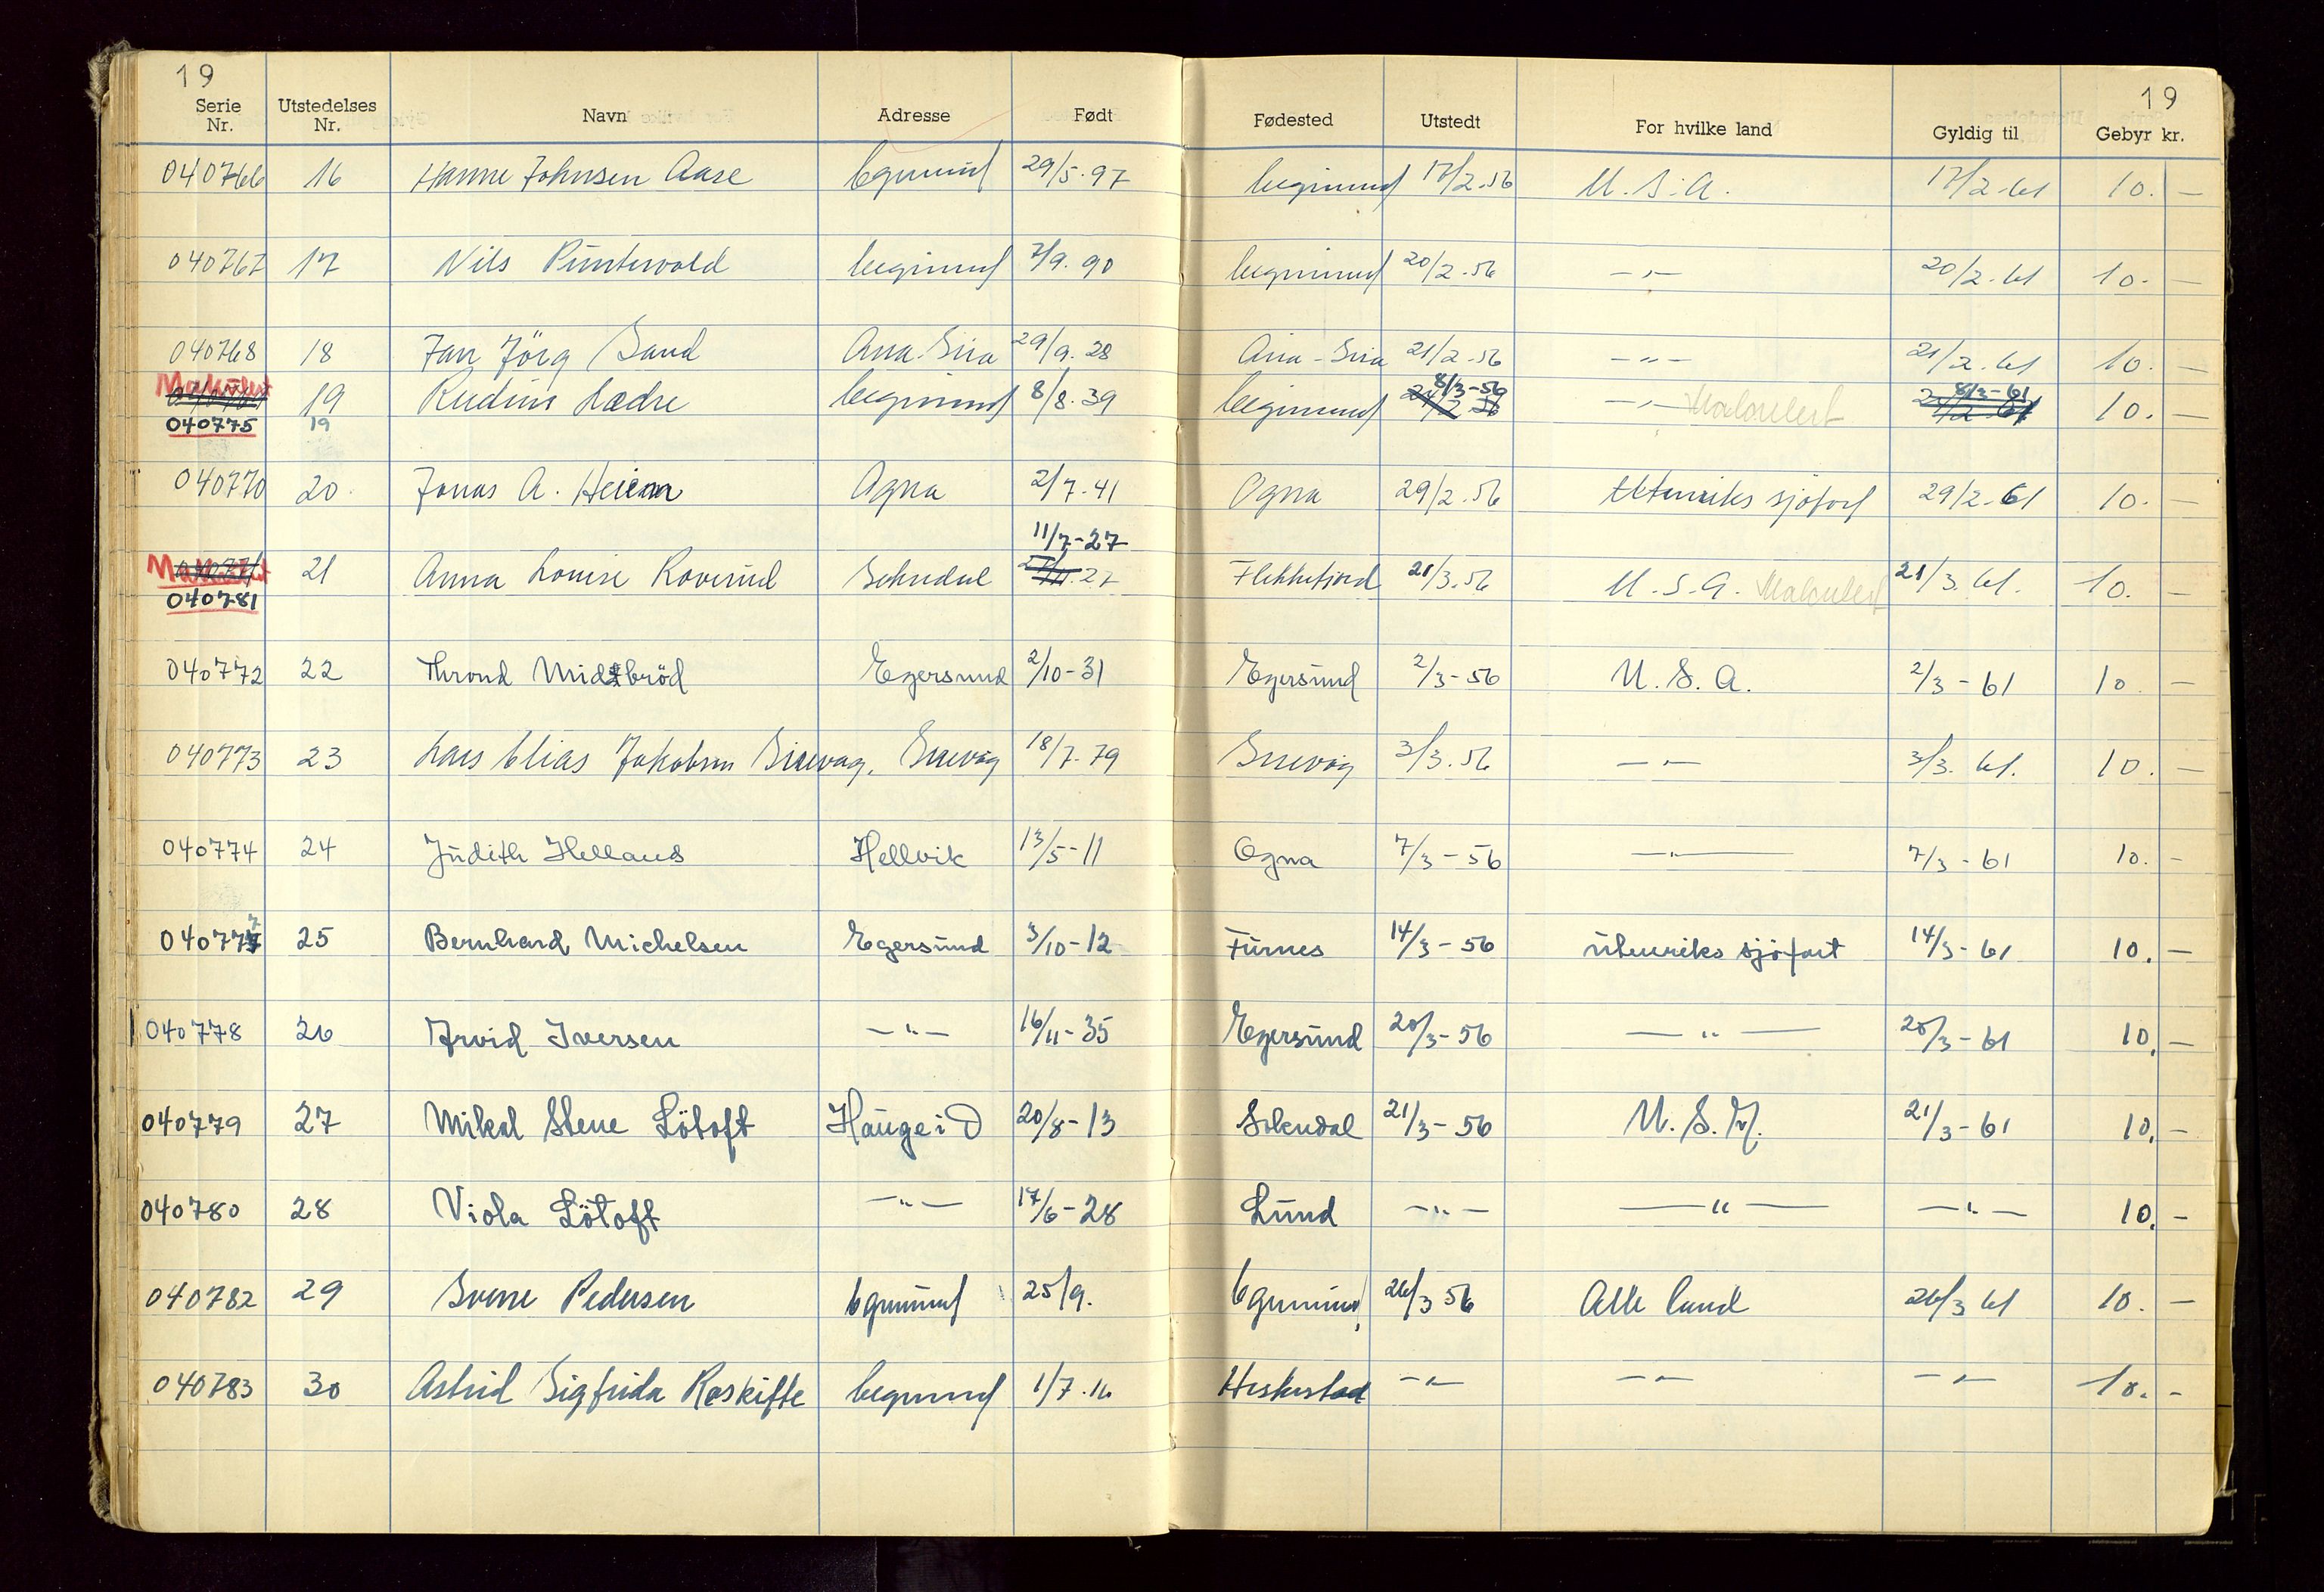 19 19
Serie Nr. Utstedelses Nr. Navn Adresse Født Fødested Utstedt For hvilke land Gyldig til Gebyr kr.
040766 16 Hanne Johnsen Aase Egersund 29/5.97 Egersund 17/2.56 U.S.A. 17/2.61 10. —
040767 17 Nils Puntervold Egersund 7/9.90 Egersund 20/2.56 —"— 20/2.61 10. —
040768 18 Jan Jörg Sand Ana-Sira 29/9.28 Ana-Sira 21/2.56 —"— 21/2.61 10. —
Makulert 8/3-56 8/3-61
19 Rudius Lædre Egersund 8/8.39 Egersund —"— Makulert 10. —
040775 19
040770 20 Jonas A. Heiem Ogna 2/7.41 Ogna 29/2.56 Utenriks sjöfart 29/2.61 10. —
11/7-27
Makulert 21 Anna Louise Roverud Sokndal Flekkefjord 21/3.56 U.S.A. Makulert 21/3.61. 10. —
040781
040772 22 Thrond Midbröd Egersund 2/10-31 Egersund 2/3-56 U.S.A. 2/3-61 10 —
040773 23 Lars Elias Jakobsen Sirevag. Sirevåg 18/7.79 Sirevåg 3/3.56 —"— 3/3.61. 10. —
040774 24 Judith Helland Hellvik 13/5-11 Ogna 7/3-56 —"— 7/3-61 10. -
040777 25 Bernhard Michelsen Egersund 3/10-12 Furnes 14/3-56 utenriks sjöfart 14/3-61 10. —
040778 26 Arvid Iversen —"— 16/11-35 Egersund 20/3-56 —"— 20/3-61 10. —
040779 27 Mikal Stene Lötoft Hauge i D 20/8-13 Sokndal 21/3-56 U.S.A. 21/3-61 10. -
040780 28 Viola Lötoft —"— 17/6-28 Lund —"— —"— —"— 10. -
040782 29 Sverre Pedersen Egersund 25/9. Egersund 26/3 56 Alle land 26/3 61 10. —
040783 30 Astrid Sigfrida Røskifte Egersund 1/7.16 Heskestad —"— —"— —"— 10. -